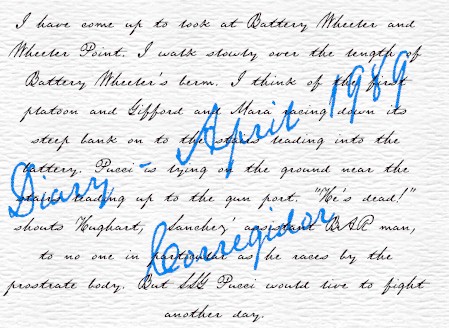 I have come up to look at Battery Wheeler and
Wheeler Point. I walk slowly over the length of
Battery Wheeler's berm. I think of the first
platoon and Gifford and Mara racing down its
steep bank on to the stairs leading into the
battery. Pucci is lying on the ground near the
stairs leading up to the gun port. "He's dead!"
shouts Hughart, Sanchez' assistant BAR man,
to no one in particular as he races by the
prostrate body. But SSG Pucci would live to fight
another day.
Diary - April 1989
Corregidor